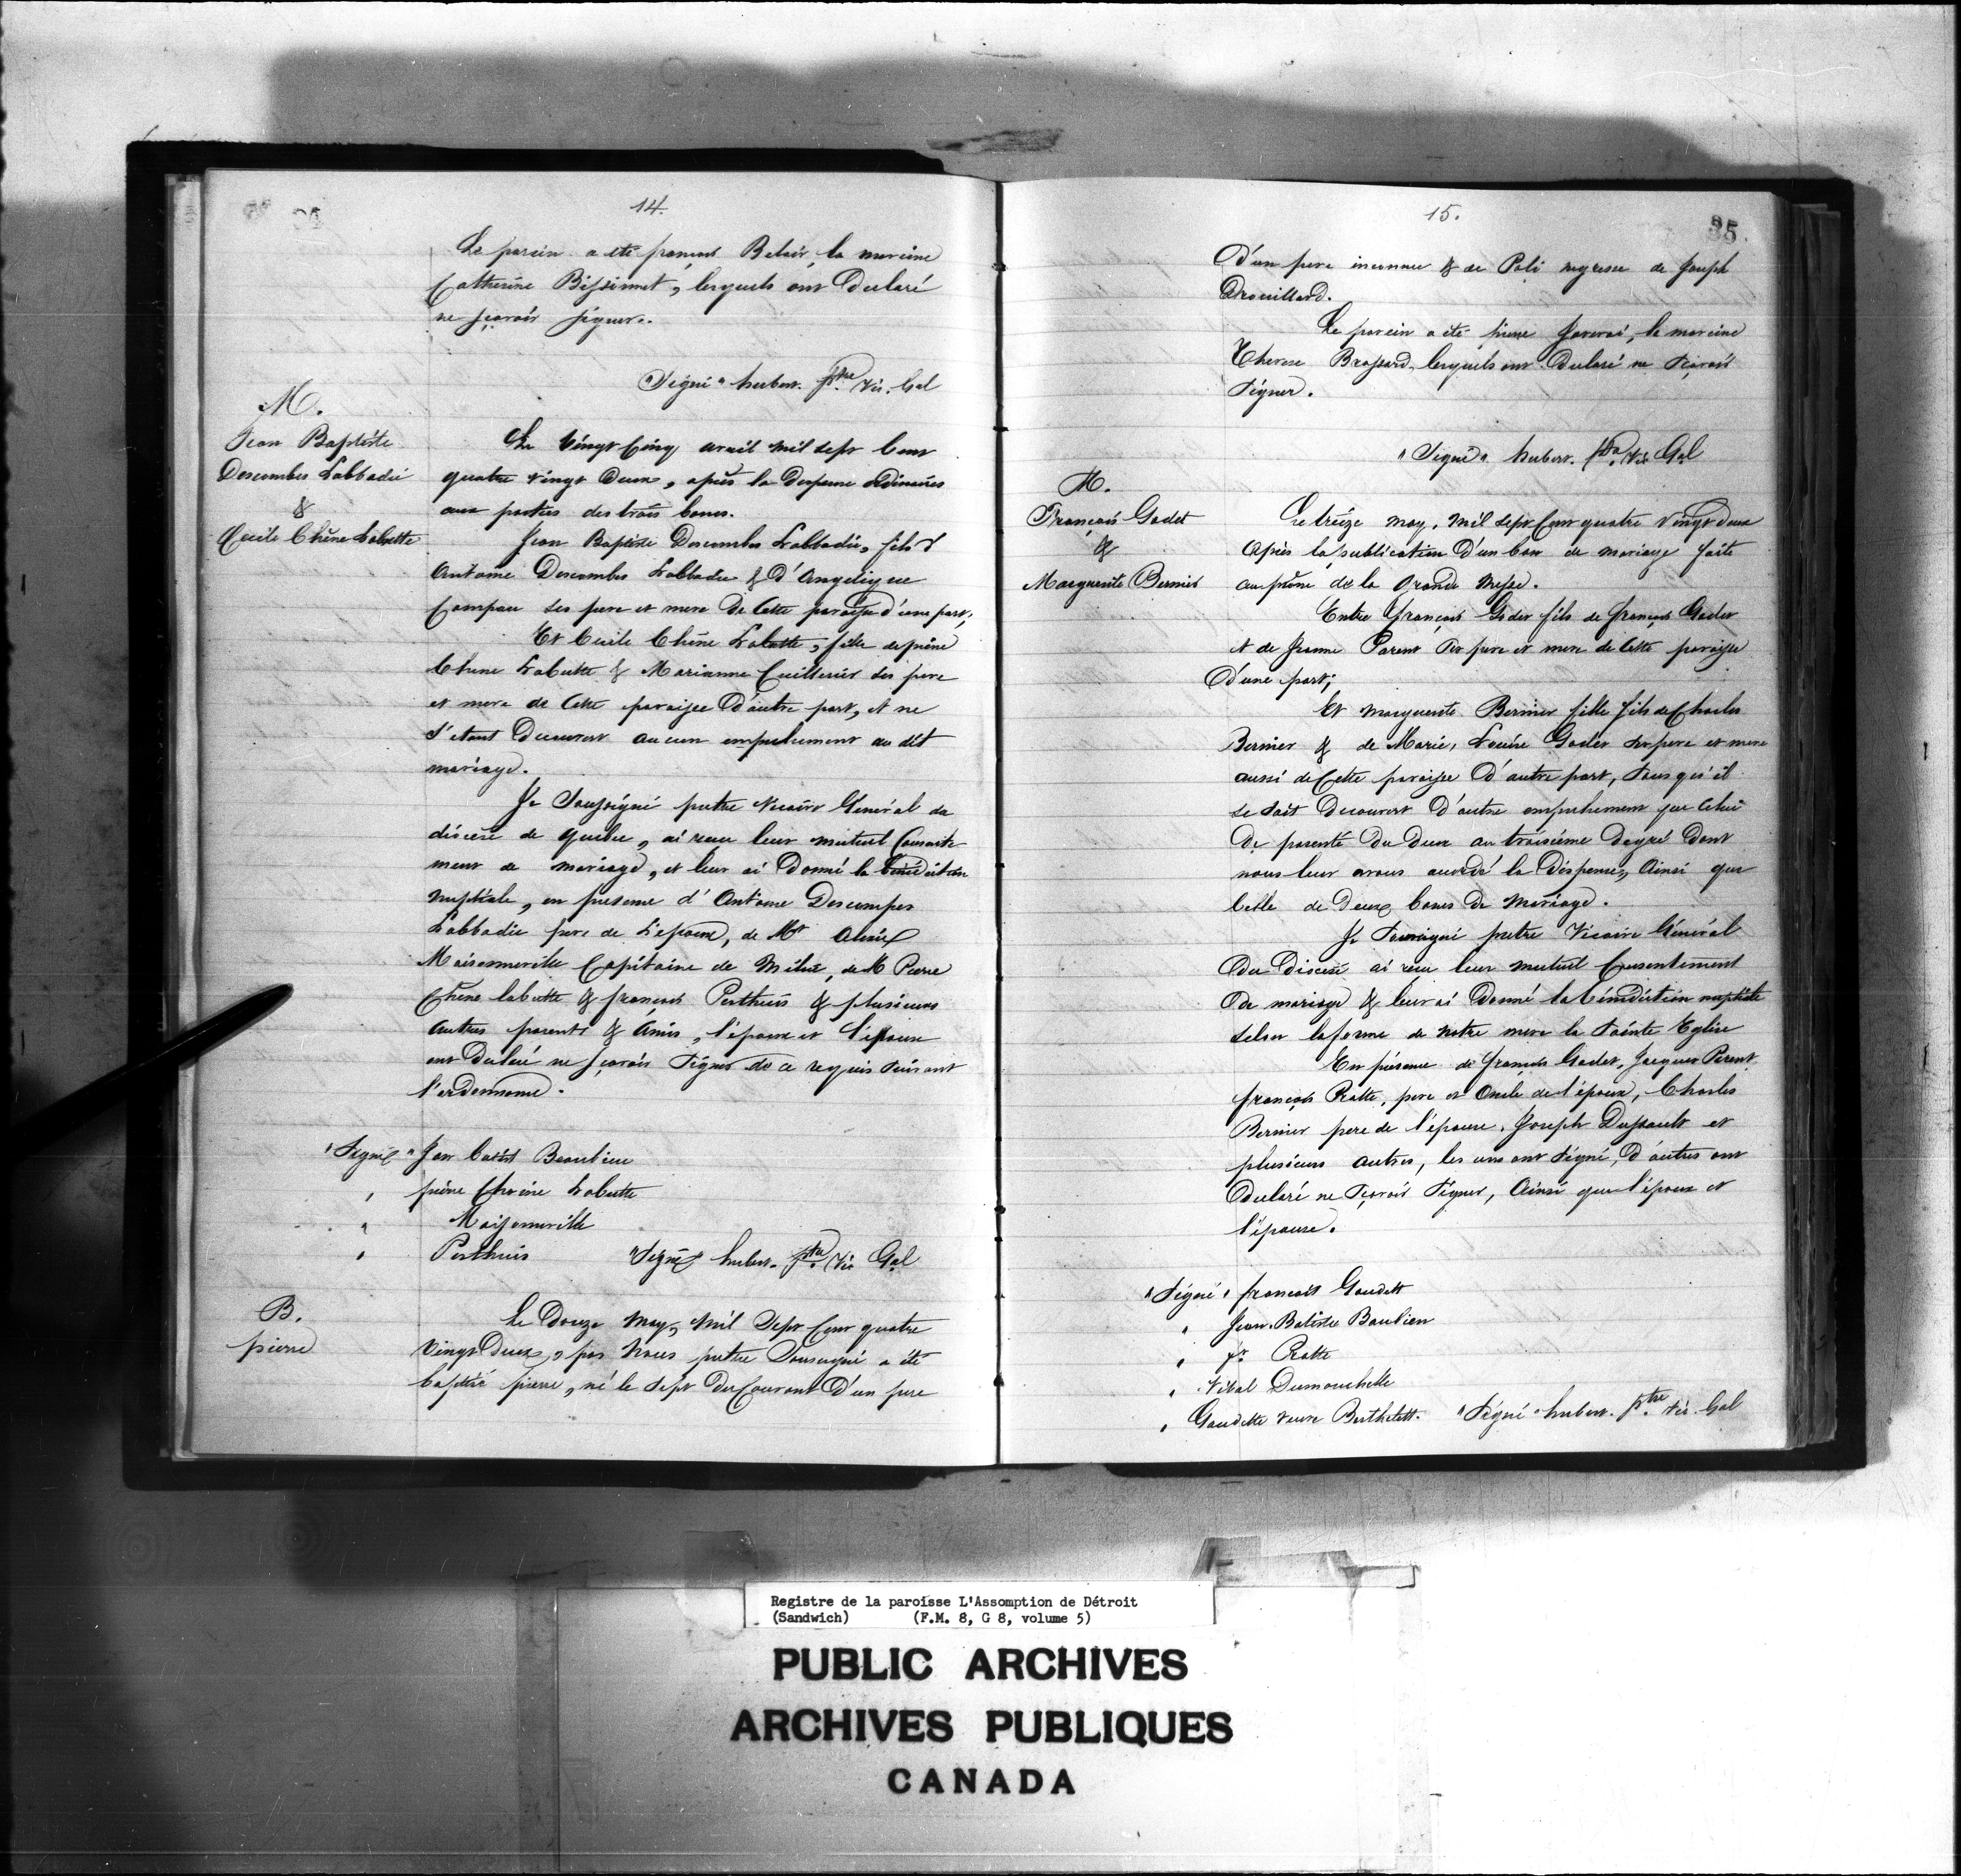 14.
Le parein a eté françois Belair, la mareine
Catherine Bissionnet, lesquels ont Declaré
ne sçavoir signer.
"Signé" hubert. ptre Vic. Gal
M.
Jean Baptiste
Descombes Labbadie
&
Cecile Chêne Labutte
Le Vingt Cinq avril mil sept Cent
quatre vingt Deux, après la Dispense ordinaires
aux parties des trois bancs.
Jean Baptiste Descombes Labbadie, fils d
Antoine Descombes Labbadie & D'Angelique
Campau ses pere et mere De Cette paroisse d'une part;
Et Cecile Chêne Labutte, fille de piére
Chene Labutte & Marianne Cuillerier ses pere
et mere de Cette paroisse D'autre part, et ne
s'etant Decouvert aucun empechement au dit
mariage.
Je Soussigné pretre Vicaire Général du
diócese de quebec, ai reçu leur mutuel Consente-
ment de mariage, et leur ai Donné la bénédiction
nuptiale, en presence d'Antoine Descompes
Labbadie pere de L'epoux, de Mr Alexis
Maisonneville Capitaine de Milice, de M Pierre
Chene labutte & françois Perthuis & plusieurs
autres parents & Amis, l'époux et l'épouse
ont Declaré ne sçavoir Signer de ce requis suivant
l'ordonnance.
"Signé" Jean batist Beaubien
" piére Chene Labutte
" Maisonneville
" Perthuis "Signé" hubert. ptre Vic Gal
B.
pierre
Le Douze May, Mil Sept Cent quatre
Vingt Deux, par Nous pretre Soussigné a été
baptisé pierre, né le sept Du Courant D'un pere
15.
35.
D'un pere inconnu & de Poli negresse de Joseph
Drouillard.
Le parein a eté pierre Javerai, la mareine
Therese Brossard, lesquels ont Declaré ne Sçavoir
Signer.
"Signé" hubert. ptre Vic Gal
M.
François Godet
&
Marguerite Bernier
Le treize may, Mil sept Cent quatre Vingt deux
Après la publication D'un ban de mariage faite
au prône de la Grande Messe.
Entre françois Godet fils de françois Godet
et de Jeanne Parent Ses pere et mere de Cette paroisse
D'une part;
Et marguerite Bernier fille fils de Charles
Bernier & de Marie, Louise Godet ses pere et mere
aussi de Cette paroisse D'autre part, Sans qu'il
se soit Decouvert D'autre empechement que Celui
De parenté Du Deux au troisième Degré Dont
nous leur avons accordé la Dispense, Ainsi que
Celle de Deux bancs De Mariage.
Je Soussigné pretre Vicaire Général
Du Diocese ai reçu leur mutuel Consentement
De mariage & leur ai Donné la bénédiction nuptiale
selon la forme de notre mere la Sainte Eglise
En présence de françois Godet, Jacques Parent
françois Ratte, pere et Oncle de l'époux, Charles
Bernier pere de l'épouse, Joseph Dussault et
plusieurs autres, les uns ont signé, D'autres ont
Declaré ne Sçavoir Signer, Ainsi que l'époux et
l'épouse.
"Signé" francois Gaudett
" Jean Batiste Baubien
" fr. Ratte
" Vital Dumouchelle
" Gaudette veuve Berthelett. "Signé" hubert. ptre Vic. Gal
Registre de la paroisse L'Assomption de Détroit
(Sandwich) (F.M. 8, G 8, volume 5)
PUBLIC ARCHIVES
ARCHIVES PUBLIQUES
CANADA